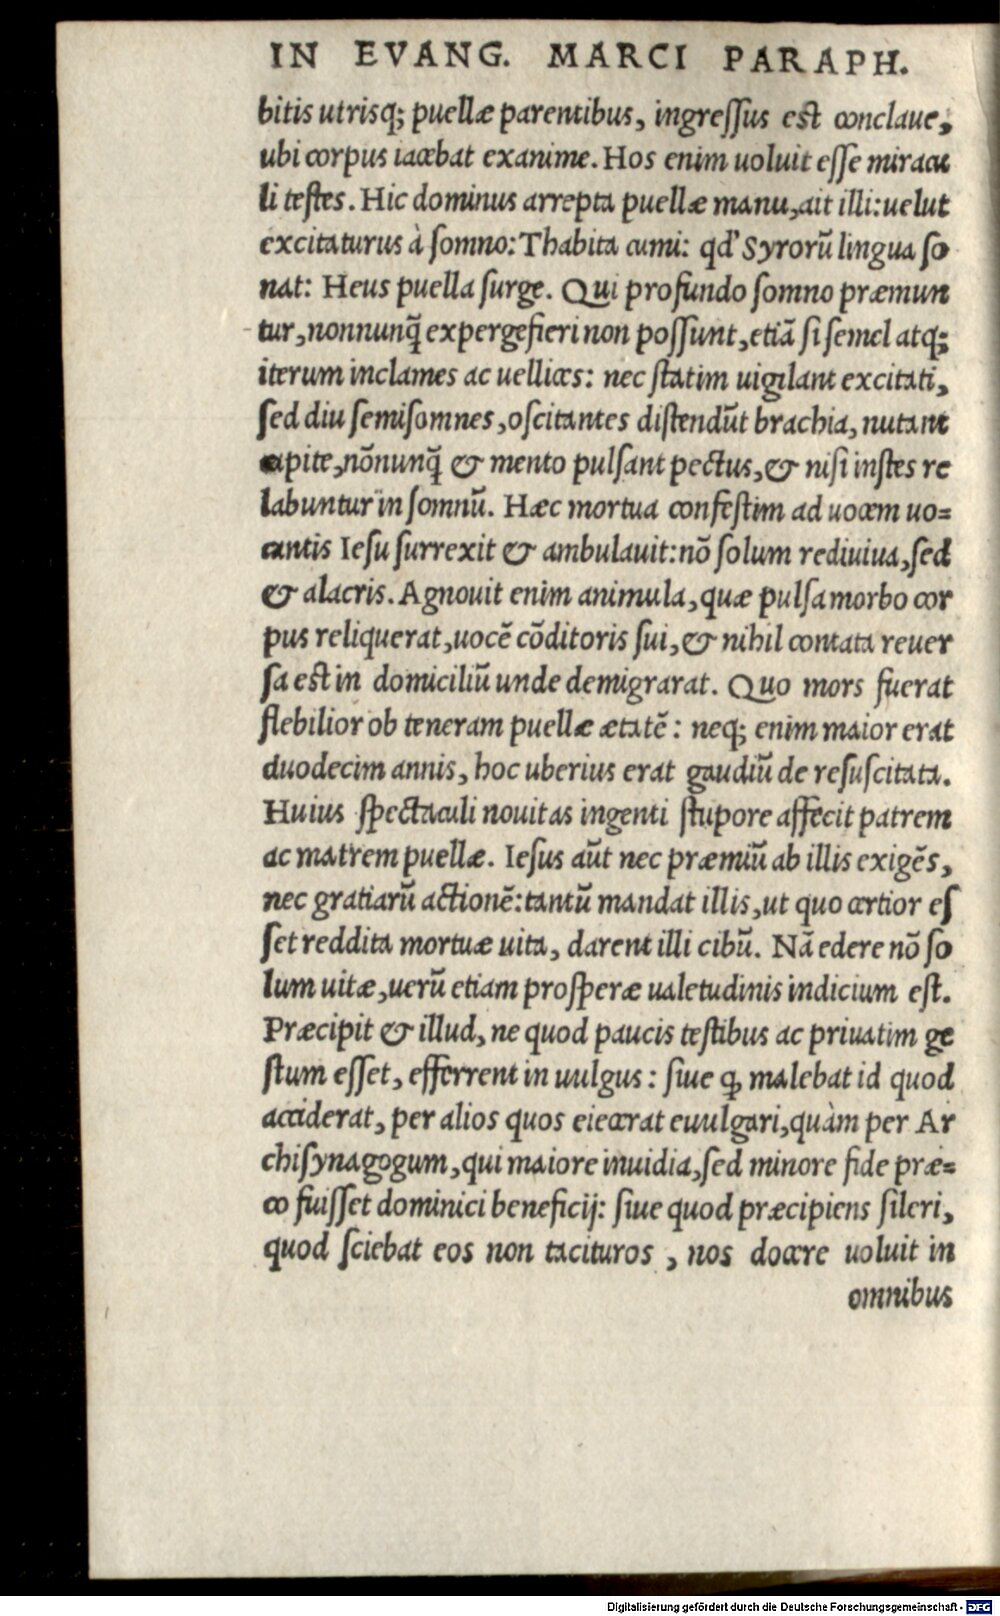 IN EVANG. MARCI PARAPH.
bitis utrisq; puellæ parentibus, ingreſſus est conclaue,
ubi corpus iacebat exanime. Hos enim uoluit eſſe miracu
li teſtes. Hic dominus arrepta puellæ manu, ait illi: uelut
excitaturus à ſomno: Thabita cumi: qd' Syrorū lingua ſo
nat: Heus puella ſurge. Qui profundo ſomno præmun
tur, nonnunq̄ expergefieri non poſſunt, etiā ſi ſemel atq;
iterum inclames ac uellices: nec ſtatim uigilant excitati,
ſed diu ſemiſomnes, oſcitantes diſtendūt brachia, nutant
capite, nōnunq̄ & mento pulſant pectus, & niſi inſtes re
labuntur in ſomnū. Hæc mortua confeſtim ad uocem uo=
cantis Ieſu ſurrexit & ambulauit: nō ſolum rediuiua, ſed
& alacris. Agnouit enim animula, quæ pulſa morbo cor
pus reliquerat, uocē cōditoris ſui, & nihil contata reuer
ſa est in domiciliū unde demigrarat. Quo mors fuerat
flebilior ob teneram puellæ ætatē: neq; enim maior erat
duodecim annis, hoc uberius erat gaudiū de reſuſcitata.
Huius ſpectaculi nouitas ingenti ſtupore affecit patrem
ac matrem puellæ. Ieſus aūt nec præmiū ab illis exigēs,
nec gratiarū actionē: tantū mandat illis, ut quo certior eſ
ſet reddita mortuæ uita, darent illi cibū. Nā edere nō ſo
lum uitæ, uerū etiam proſperæ ualetudinis indicium eſt.
Præcipit & illud, ne quod paucis teſtibus ac priuatim ge
ſtum eſſet, efferrent in uulgus: ſiue ꝙ malebat id quod
acciderat, per alios quos eiecerat euulgari, quàm per Ar
chiſynagogum, qui maiore inuidia, ſed minore fide præ=
co fuiſſet dominici beneficij: ſiue quod præcipiens ſileri,
quod ſciebat eos non tacituros, nos docere uoluit in
omnibus
Digitalisierung gefördert durch die Deutsche Forschungsgemeinschaft - DFG